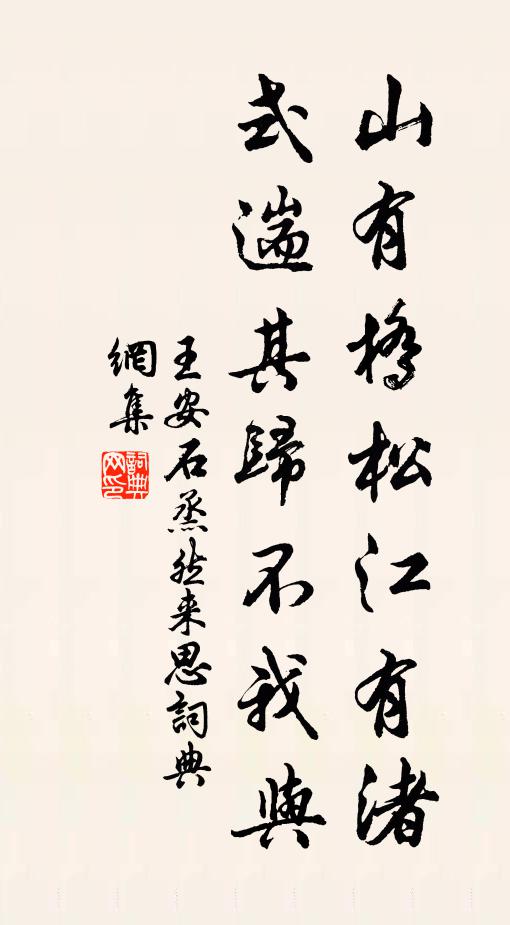 山有橋松江有渚
式遄其歸不我與
王安石烝然来思詞典
網集
詞典
网印